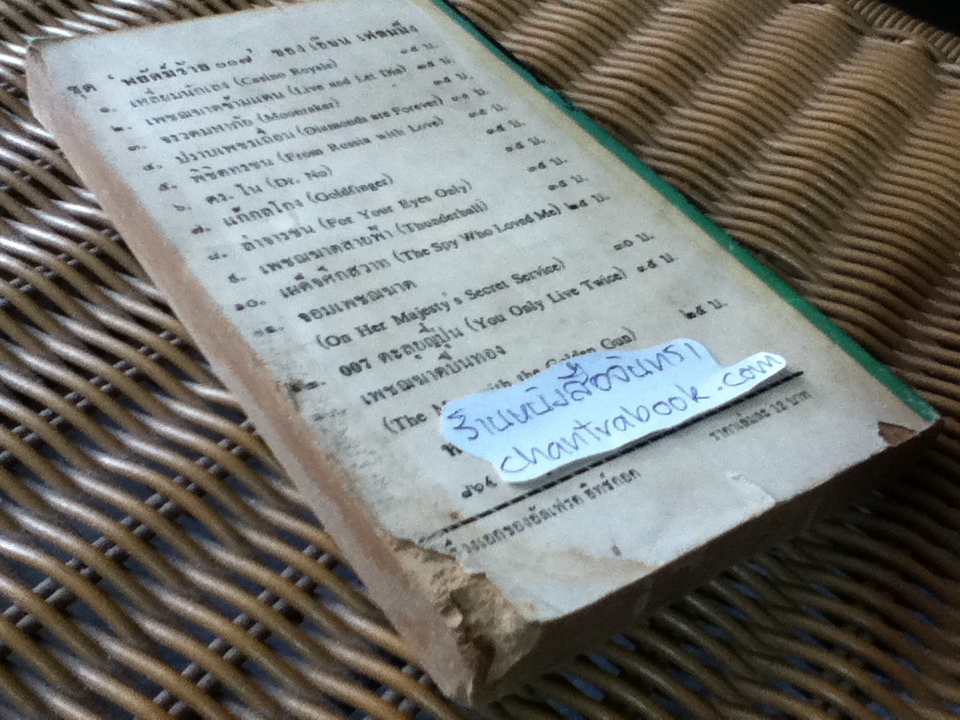 ชุด ‘พยัคฆ์ร้าย ๐๐๗’ ของ เอียน เฟลมมิ่ง
๑. เหลี่ยมนักเลง (Casino Royale) ๑๕ บ.
๒. เพชฌฆาตข้ามแดน (Live and Let Die) ๑๕ บ.
๓. จรวดมหาภัย (Moonraker) ๑๕ บ.
๔. ปราบเพชรเถื่อน (Diamonds are Forever) ๑๕ บ.
๕. พิชิตทรชน (From Russia with Love) ๑๕ บ.
๖. ดร. โน (Dr. No) ๑๕ บ.
๗. (Goldfinger) ๑๕ บ.
๘. ล่าทรชน (For Your Eyes Only) ๑๕ บ.
๙. เพชฌฆาตสายฟ้า (Thunderball) ๑๕ บ.
๑๐. (The Spy Who Loved Me) ๒๕ บ.
๑๑. จอมเพชฌฆาต
(On Her Majesty's Secret Service) ๓๐ บ.
๑๒. 007 ตะลุยญี่ปุ่น (You Only Live Twice) ๑๕ บ.
เพชฌฆาตปืนทอง
(The with the Golden Gun) ๒๕ บ.
ร้านหนังสือจันทรา
chantrabook.com
ราคาเล่มละ 12 บาท
ของอัลเฟรด ฮิทช์คอก